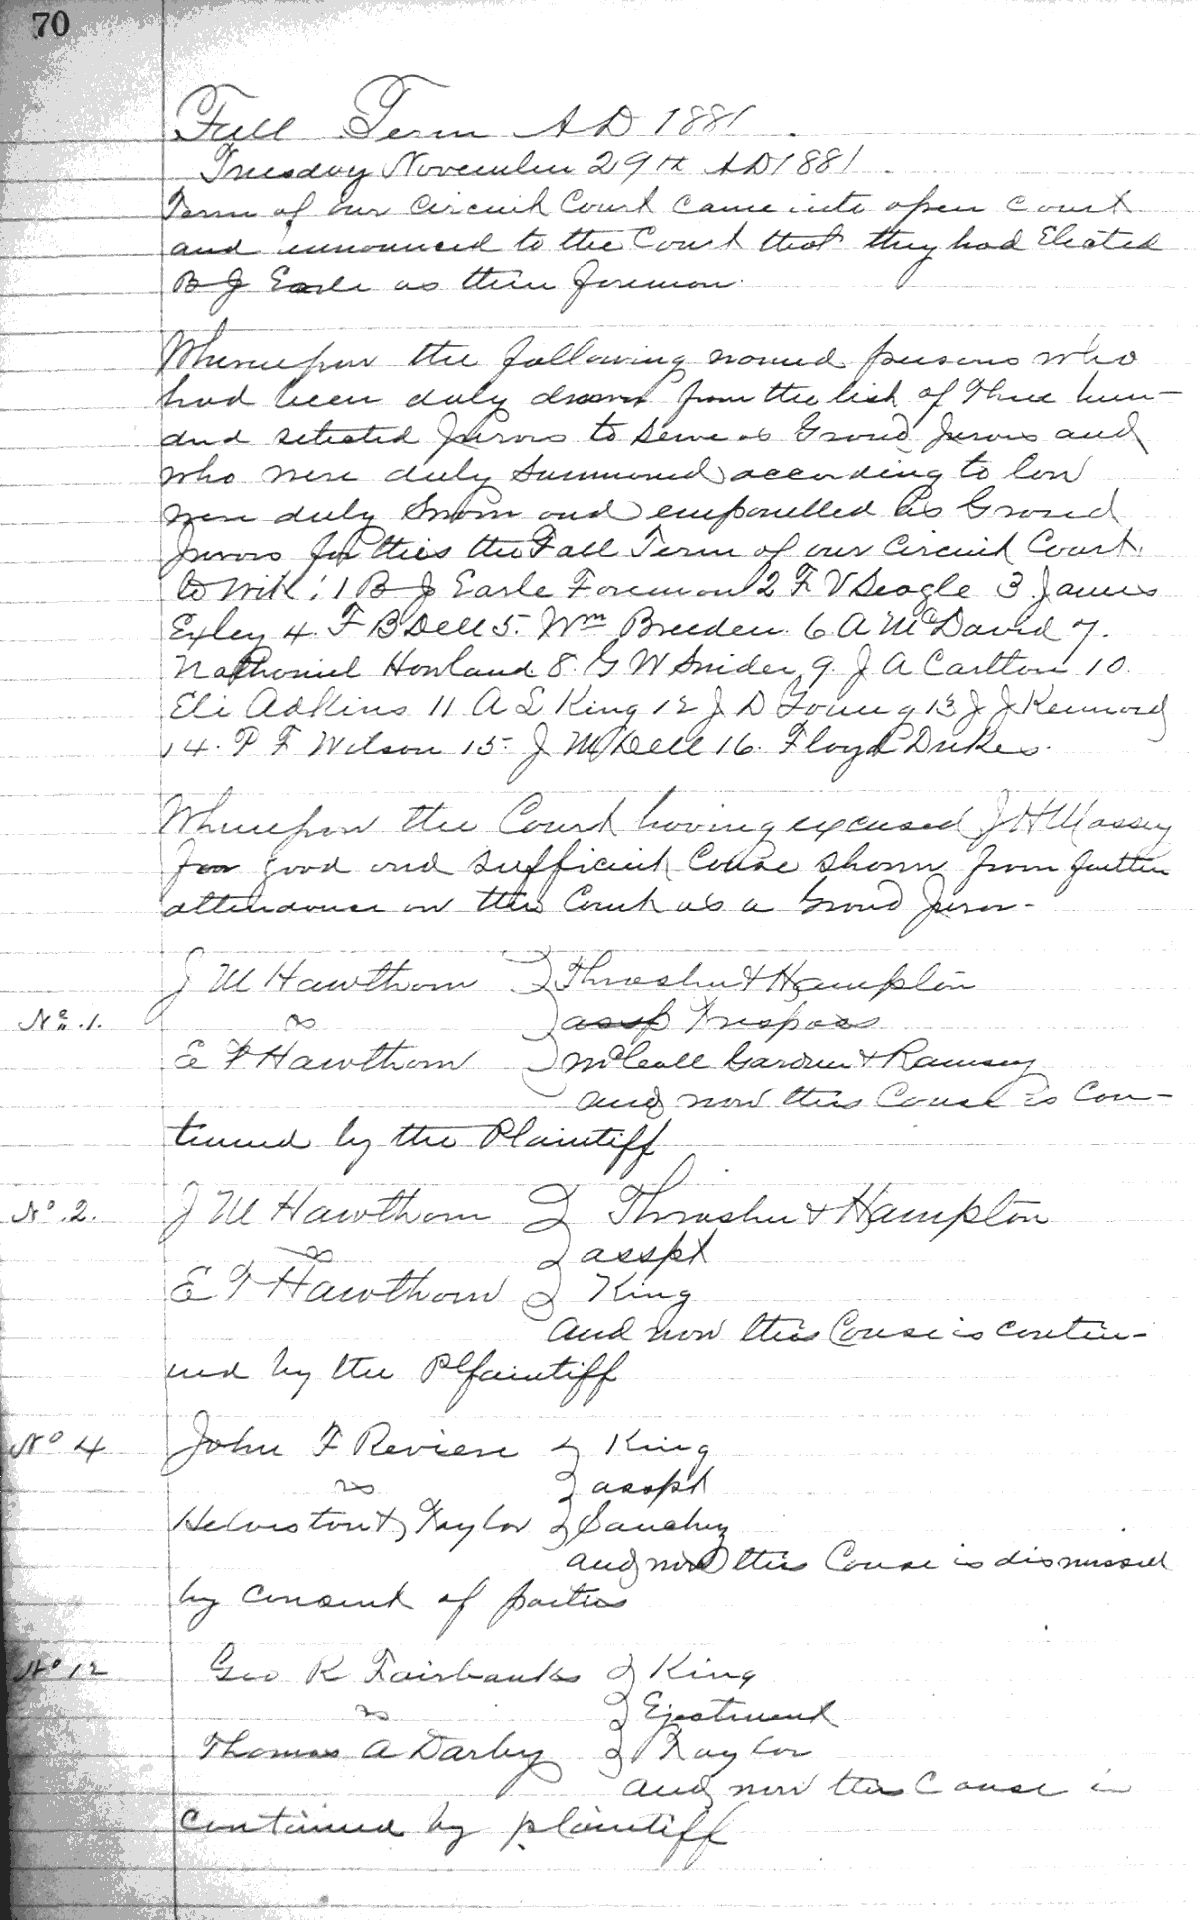 70
Fall Term AD 1881.
Tuesday November 29th AD 1881.
Term of our Circuit Court came into open Court
and announced to the Court that they had Elected
B J Earle as their foreman.
Whereupon the following named persons who
had been duly drawn from the list of Three hun-
dred selected Jurors to serve as Grand Jurors and
who were duly summoned according to law
were duly Sworn and empanelled as Grand
Jurors for this the Fall Term of our Circuit Court.
to Wit: 1 B J Earle Foreman 2 F V Seagle 3 James
Exley 4. F B Dell 5. Wm Breeden 6 A McDavid 7.
Nathaniel Howland 8. G W Snider 9. J A Carlton 10
Eli Adkins 11 A L King 12 J D Young 13 J J Kennard
14. P F Wilson 15- J M Dell 16. Floyd Dukes.
Whereupon the Court having excused J H Massey
for good and sufficient Cause shown from further
attendance on this Court as a Grand Juror-
J M Hawthorn } Thrasher & Hampton
No. 1. vs } assp Trespass
E F Hawthorn } McCall Gardner & Ramsey
and now this Cause is Con-
tinued by the Plaintiff
No. 2. J M Hawthorn } Thrasher & Hampton
vs } asspt
E F Hawthorn } King
and now this Cause is contin-
ued by the Plaintiff
No 4 John F Reviere } King
vs } asspt
Helveston & Taylor } Sanchez
and now this Cause is dismissed
by consent of parties
No 12 Geo R Fairbanks } King
vs } Ejectment
Thomas A Darby } Taylor
and now this Cause is
continued by plaintiff